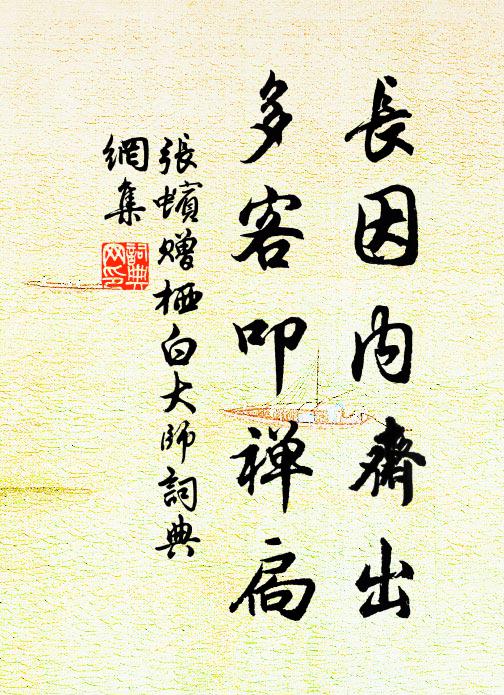 長因内齋出
多客叩禅扃
張蠙贈栖白大師詞典
網集
詞典
网印